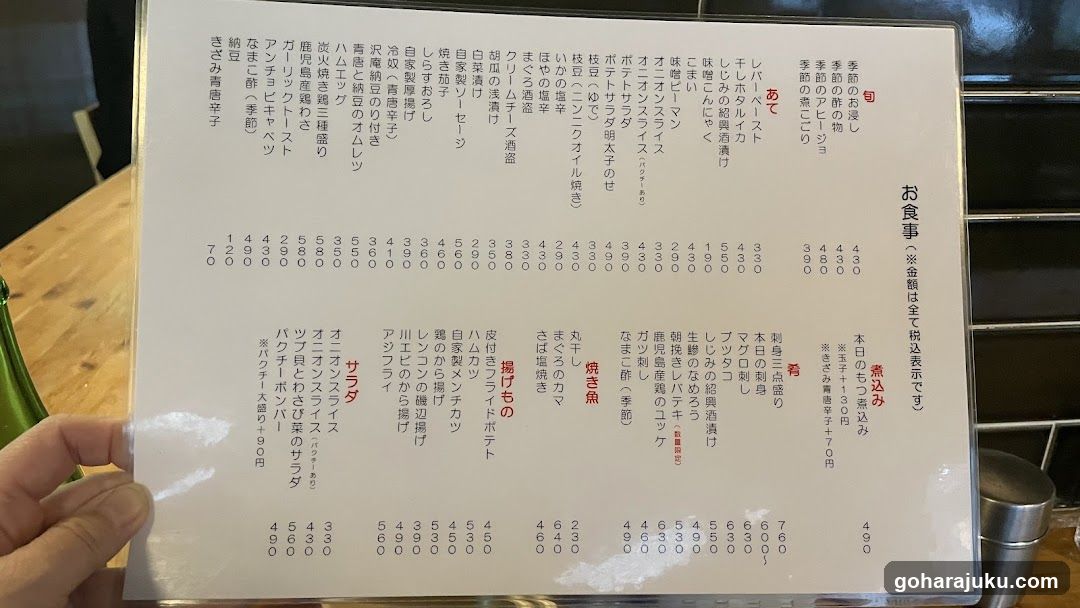 お食事(※金額は全て税込表示です)
旬
季節のお浸し 430
季節の酢の物 430
季節のアヒージョ 480
季節の煮こごり 390
あて
レバーペースト 330
干しホタルイカ 430
しじみの紹興酒漬け 550
味噌こんにゃく 190
こまい 430
味噌ピーマン 290
オニオンスライス 330
オニオンスライス(パクチーあり) 430
ポテトサラダ 390
ポテトサラダ明太子のせ 490
枝豆(ゆで) 330
枝豆(ニンニクオイル焼き) 430
いかの塩辛 290
ほやの塩辛 430
まぐろ酒盗 530
クリームチーズ酒盗 380
胡瓜の浅漬け 350
白菜漬け 290
自家製ソーセージ 560
焼き茄子 460
しらすおろし 360
自家製厚揚げ 390
冷奴(青唐辛子) 410
沢庵納豆のり付き 360
青唐と納豆のオムレツ 550
ハムエッグ 350
炭火焼き鶏三種盛り 580
鹿児島産鶏わさ 580
ガーリックトースト 290
アンチョビキャベツ 430
なまこ酢(季節) 490
納豆 120
きざみ青唐辛子 70
煮込み
本日のもつ煮込み 490
※玉子+130円
※きざみ青唐辛子+70円
肴
刺身三点盛り 760
本日の刺身 600〜
マグロ刺し 630
ブツタコ 630
しじみの紹興酒漬け 550
生鯵のなめろう 490
朝挽きレバテキ(数量限定) 530
鹿児島産鶏のユッケ 630
ガツ刺し 460
なまこ酢(季節) 490
焼き魚
丸干し 230
まぐろのカマ 640
さば塩焼き 460
揚げもの
皮付きフライドポテト 450
ハムカツ 530
自家製メンチカツ 450
鶏のから揚げ 530
レンコンの磯辺揚げ 390
川エビのから揚げ 490
アジフライ 560
サラダ
オニオンスライス 330
オニオンスライス(パクチーあり) 430
ツブ貝とわさび菜のサラダ 560
パクチーボンバー 490
※パクチー大盛り+90円
goharajuku.com